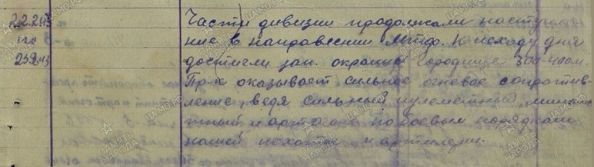 22.2.43 Части дивизии продолжали наступле-
по ние в направлении К исходу дня
23.2.43 достигли зап. окраины Городище 300-400м.
Пр-к оказывает сильное огневое сопротив-
ление, ведя сильный пулеметный, миномет-
ный и арт. огонь по боевым порядкам
нашей пехоты и артилерии.